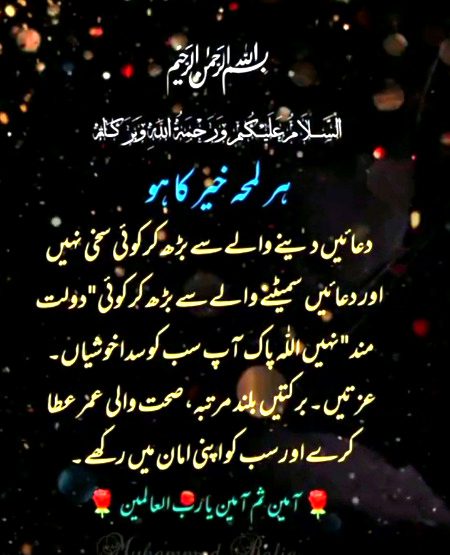 بسم اللہ الرحمن الرحیم
السَّلَامُ عَلَيْكُمْ وَرَحْمَةُ اللهِ وَبَرَكَاتُهُ
ہر لمحہ خیر کا ہو
دعائیں دینے والے سے بڑھ کر کوئی سخی نہیں
اور دعائیں سمیٹنے والے سے بڑھ کر کوئی "دولت
مند" نہیں اللہ پاک آپ سب کو سدا خوشیاں۔
عزتیں۔ برکتیں بلند مرتبہ، صحت والی عمر عطا
کرے اور سب کو اپنی امان میں رکھے۔
🌹 آمین ثم آمین یا رب العالمین 🌹
Muhammad